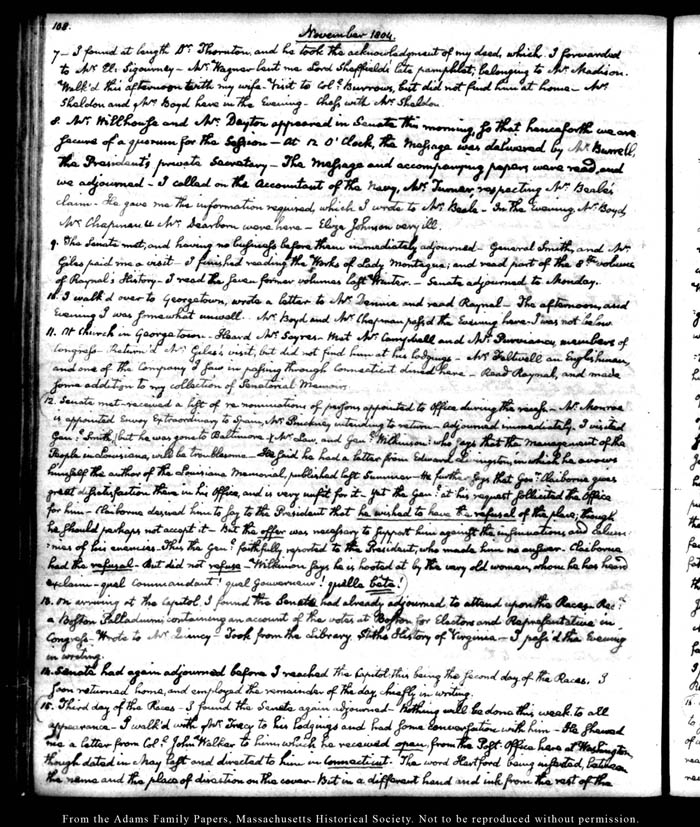 108.
November 1804.
7— I found at length Dr. Thornton, and he took the acknowledgment of my deed, which I forwarded
to Mr. El: Sigourney— Mr. Wagner lent me Lord Sheffield's late pamphlet, belonging to Mr. Madison.
Walk'd this afternoon with my wife— Visit to Coll. Burrows, but did not find him at home— Mr.
Sheldon and Mr. Boyd here in the Evening— Chess with Mr. Sheldon.
8. Mr. Hillhouse and Mr. Dayton appeared in Senate this morning, so that henceforth we are
secure of a quorum for the Session— At 12 O'Clock, the Message was delivered by Mr. Burwell,
the President's private Secretary— The Message and accompanying papers were read, and
we adjourned— I called on the Accountant of the Navy, Mr. Turner, respecting Mr. Beale's
claim— He gave me the information required, which I wrote to Mr. Beale— In the Evening, Mr. Boyd,
Mr. Chapman & Mr. Dearborn were here— Eliza Johnson very ill.
9. The Senate met, and having no business before them immediately adjourned— General Smith, and Mr.
Giles paid me a visit— I finished reading the Works of Lady Montague; and read part of the 8th volume
of Raynal's History— I read the seven former volumes last Winter.— Senate adjourned to Monday.
10. I walk'd over to Georgetown, wrote a letter to Mr. Dennie and read Raynal— The afternoon, and
Evening I was somewhat unwell. Mr. Boyd and Mr. Chapman pass'd the Evening here. I was not below
11. At Church in Georgetown— Heard Mr. Sayrs— Met Mr. Campbell and Mr. Purviance, members of
Congress— Return'd Mr. Giles's visit, but did not find him at his lodgings— Mr. an Englishman,
and one of the Company I saw in passing through Connecticut dined here— Read Raynal, and made
some addition to my collection of Senatorial Memoirs.
12. Senate met— received a list of re nominations of persons appointed to Office during the recess— Mr. Monroe
is appointed Envoy Extraordinary to Spain, Mr. Pinckney, intending to return— Adjourned immediately. I visited
Genl. Smith, but he was gone to Baltimore & Mr. Law, and Genl. Wilkinson: who says that the management of the
People in Louisiana, will be troublesome— He said he had a letter from Edward Livingston, in which he avows
himself the author of the Louisiana Memorial, published last Summer— He further says that Govr. Claiborne gives
great dissatisfaction there in his Office, and is very unfit for it— Yet the Genl: at his request sollicited the Office
for him— Claiborne desired him to say to the President that he wished to have the refusal of the place, though
he should perhaps not accept it— But the offer was necessary to support him against the insinuations, and calum-
nies of his enemies. This the Genl. faithfully reported to the President, who made him no answer— Claiborne
had the refusal— But did not refuse— Wilkinson says he is hooted at by the very old women, whom he has heard
exclaim— quel commandant! quel Gouverneur! quelle bete!
13. On arriving at the Capitol I found the Senate had already adjourned to attend upon the Races. Recd.
a Boston Palladium, containing an account of the votes at Boston for Electors and Representative in
Congress— Wrote to Mr. Quincy— Took from the Library History of Virginia— I pass'd the Evening
in writing.
14. Senate had again adjourned before I reached the Capitol; this being the second day of the Races. I
soon returned home, and employed the remainder of the day, chiefly in writing.
15. Third day of the Races— I found the Senate again adjourned— Nothing will be done this week, to all
appearance— I walk'd with Mr. Tracy to his lodgings and had some conversation with him— He shewed
me a letter from Coll. John Walker to him which he received open, from the Post Office here at Washington,
though dated in May last and directed to him in Connecticut. The word Hartford being inserted, between
the name and the place of direction on the cover— But in a different hand and ink from the rest of the
From the Adams Family Papers, Massachusetts Historical Society. Not to be reproduced without permission.